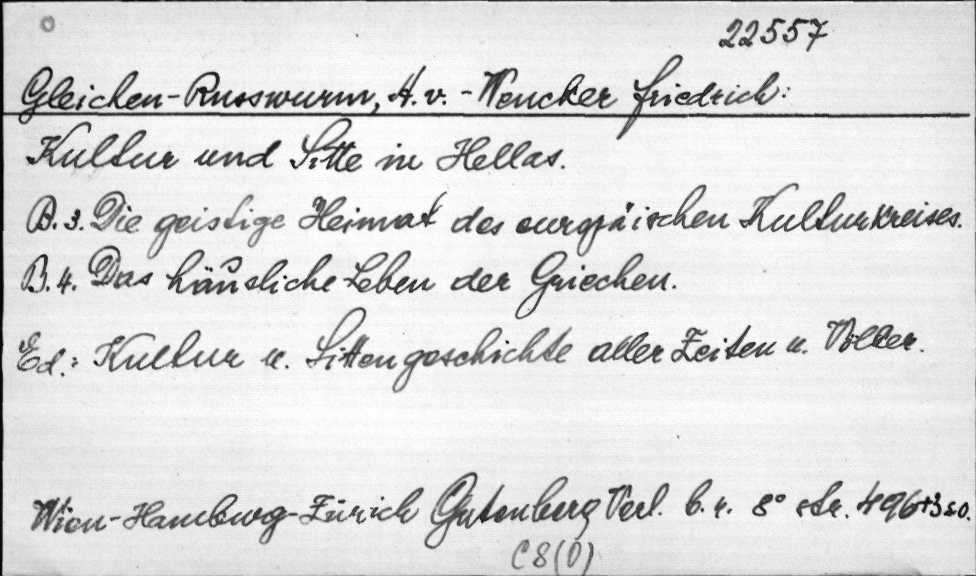 22557
Gleichen-Russwurm, A. v. - Wencker Friedrich:
Kultur und Sitte in Hellas.
B. 3. Die geistige Heimat des europäischen Kulturkreises.
B. 4. Das häusliche Leben der Griechen.
Ed.: Kultur u. Sittengeschichte aller Zeiten u. Völker.
Wien-Hamburg-Zürich Gutenberg Verl. b. r. 8° str. 496+320.
C8(0)